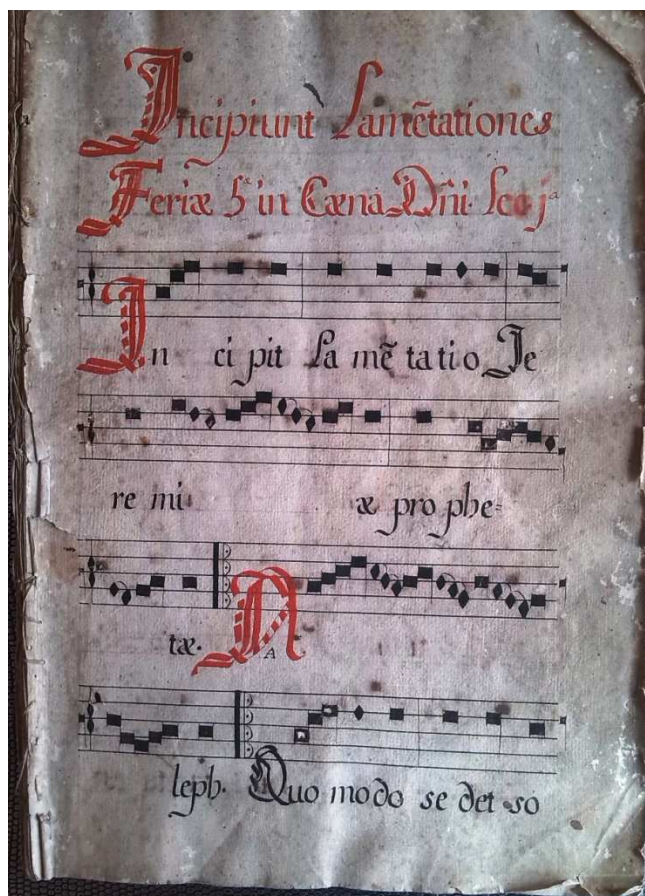 Incipiunt Lamẽtationes
Feriæ 5ª in Cæna Dñi. Lco jª
In ci pit La mẽ ta ti o Je
re mi æ pro phe=
tæ. A
leph. Quo mo do se det so